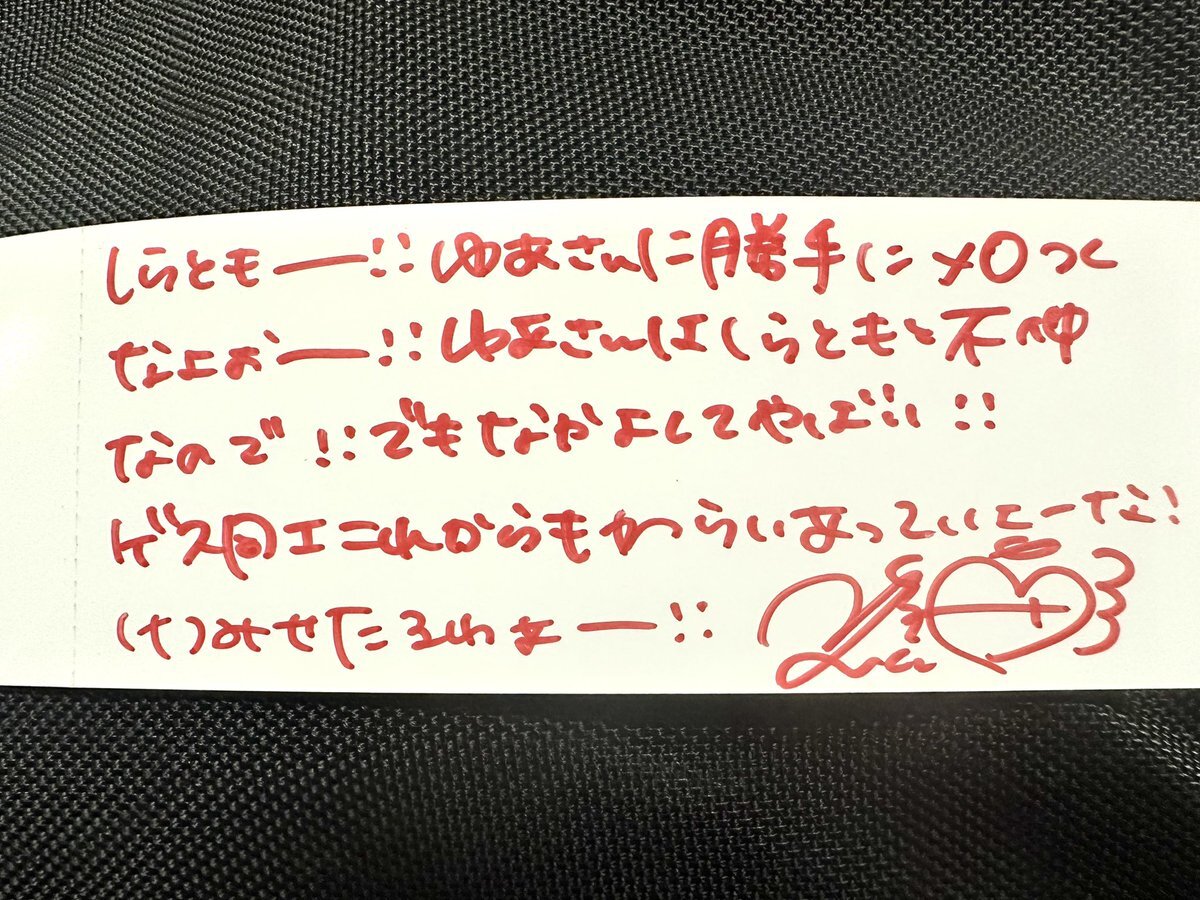 しらともー!! ゆあさんに勝手にメロつく
なよおー!! ゆあさんはしらともと不仲
なので!! でもなかよしでやばい!!
ゲス回エこれからもからいあっていこーな!
けつみせたるわぁー!!